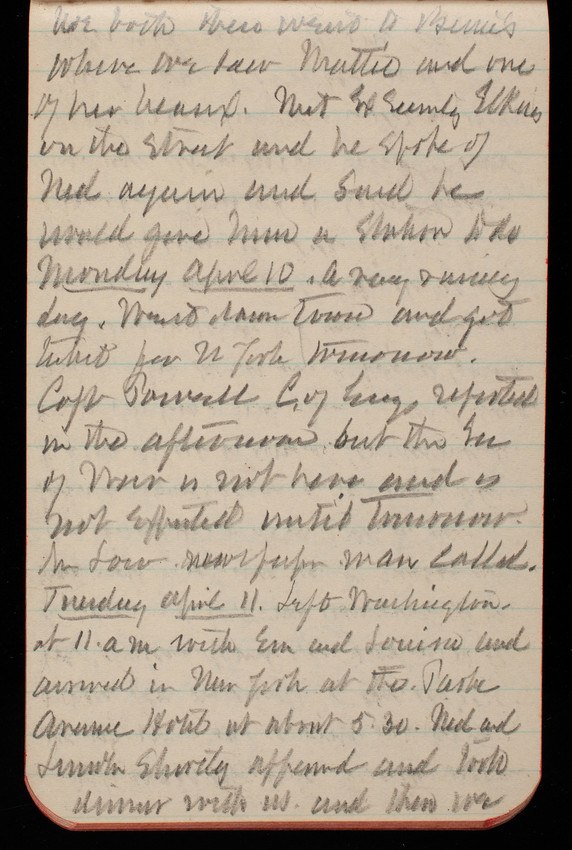 We both then went to
where we saw Mattie and one
of her beaux. Met Ex Elkins
on the street and he spoke of
Ned again and said he
would give him a Station to do
Monday April 10. A very rainy
day. Went down town and got
ticket for N York tomorrow.
Capt Powell C. of Engs reported
in the afternoon but the Sec
of War is not here and is
not expected until tomorrow.
Mr Low newspaper man called.
Tuesday April 11. Left Washington
at 11. a m with Em and Louisa and
arrived in New York at the Park
Avenue Hotel at about 5.30. Ned and
Lincoln shortly appeared and took
dinner with us. and then we